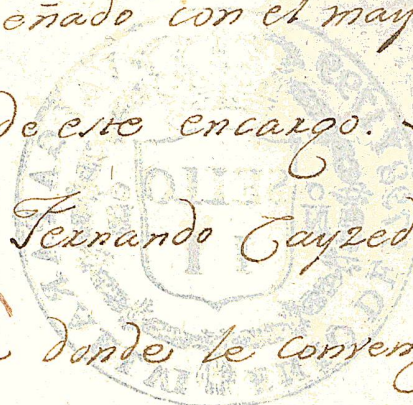 eñado con el may
de este encargo.
Fernando Cayzed
donde le conven